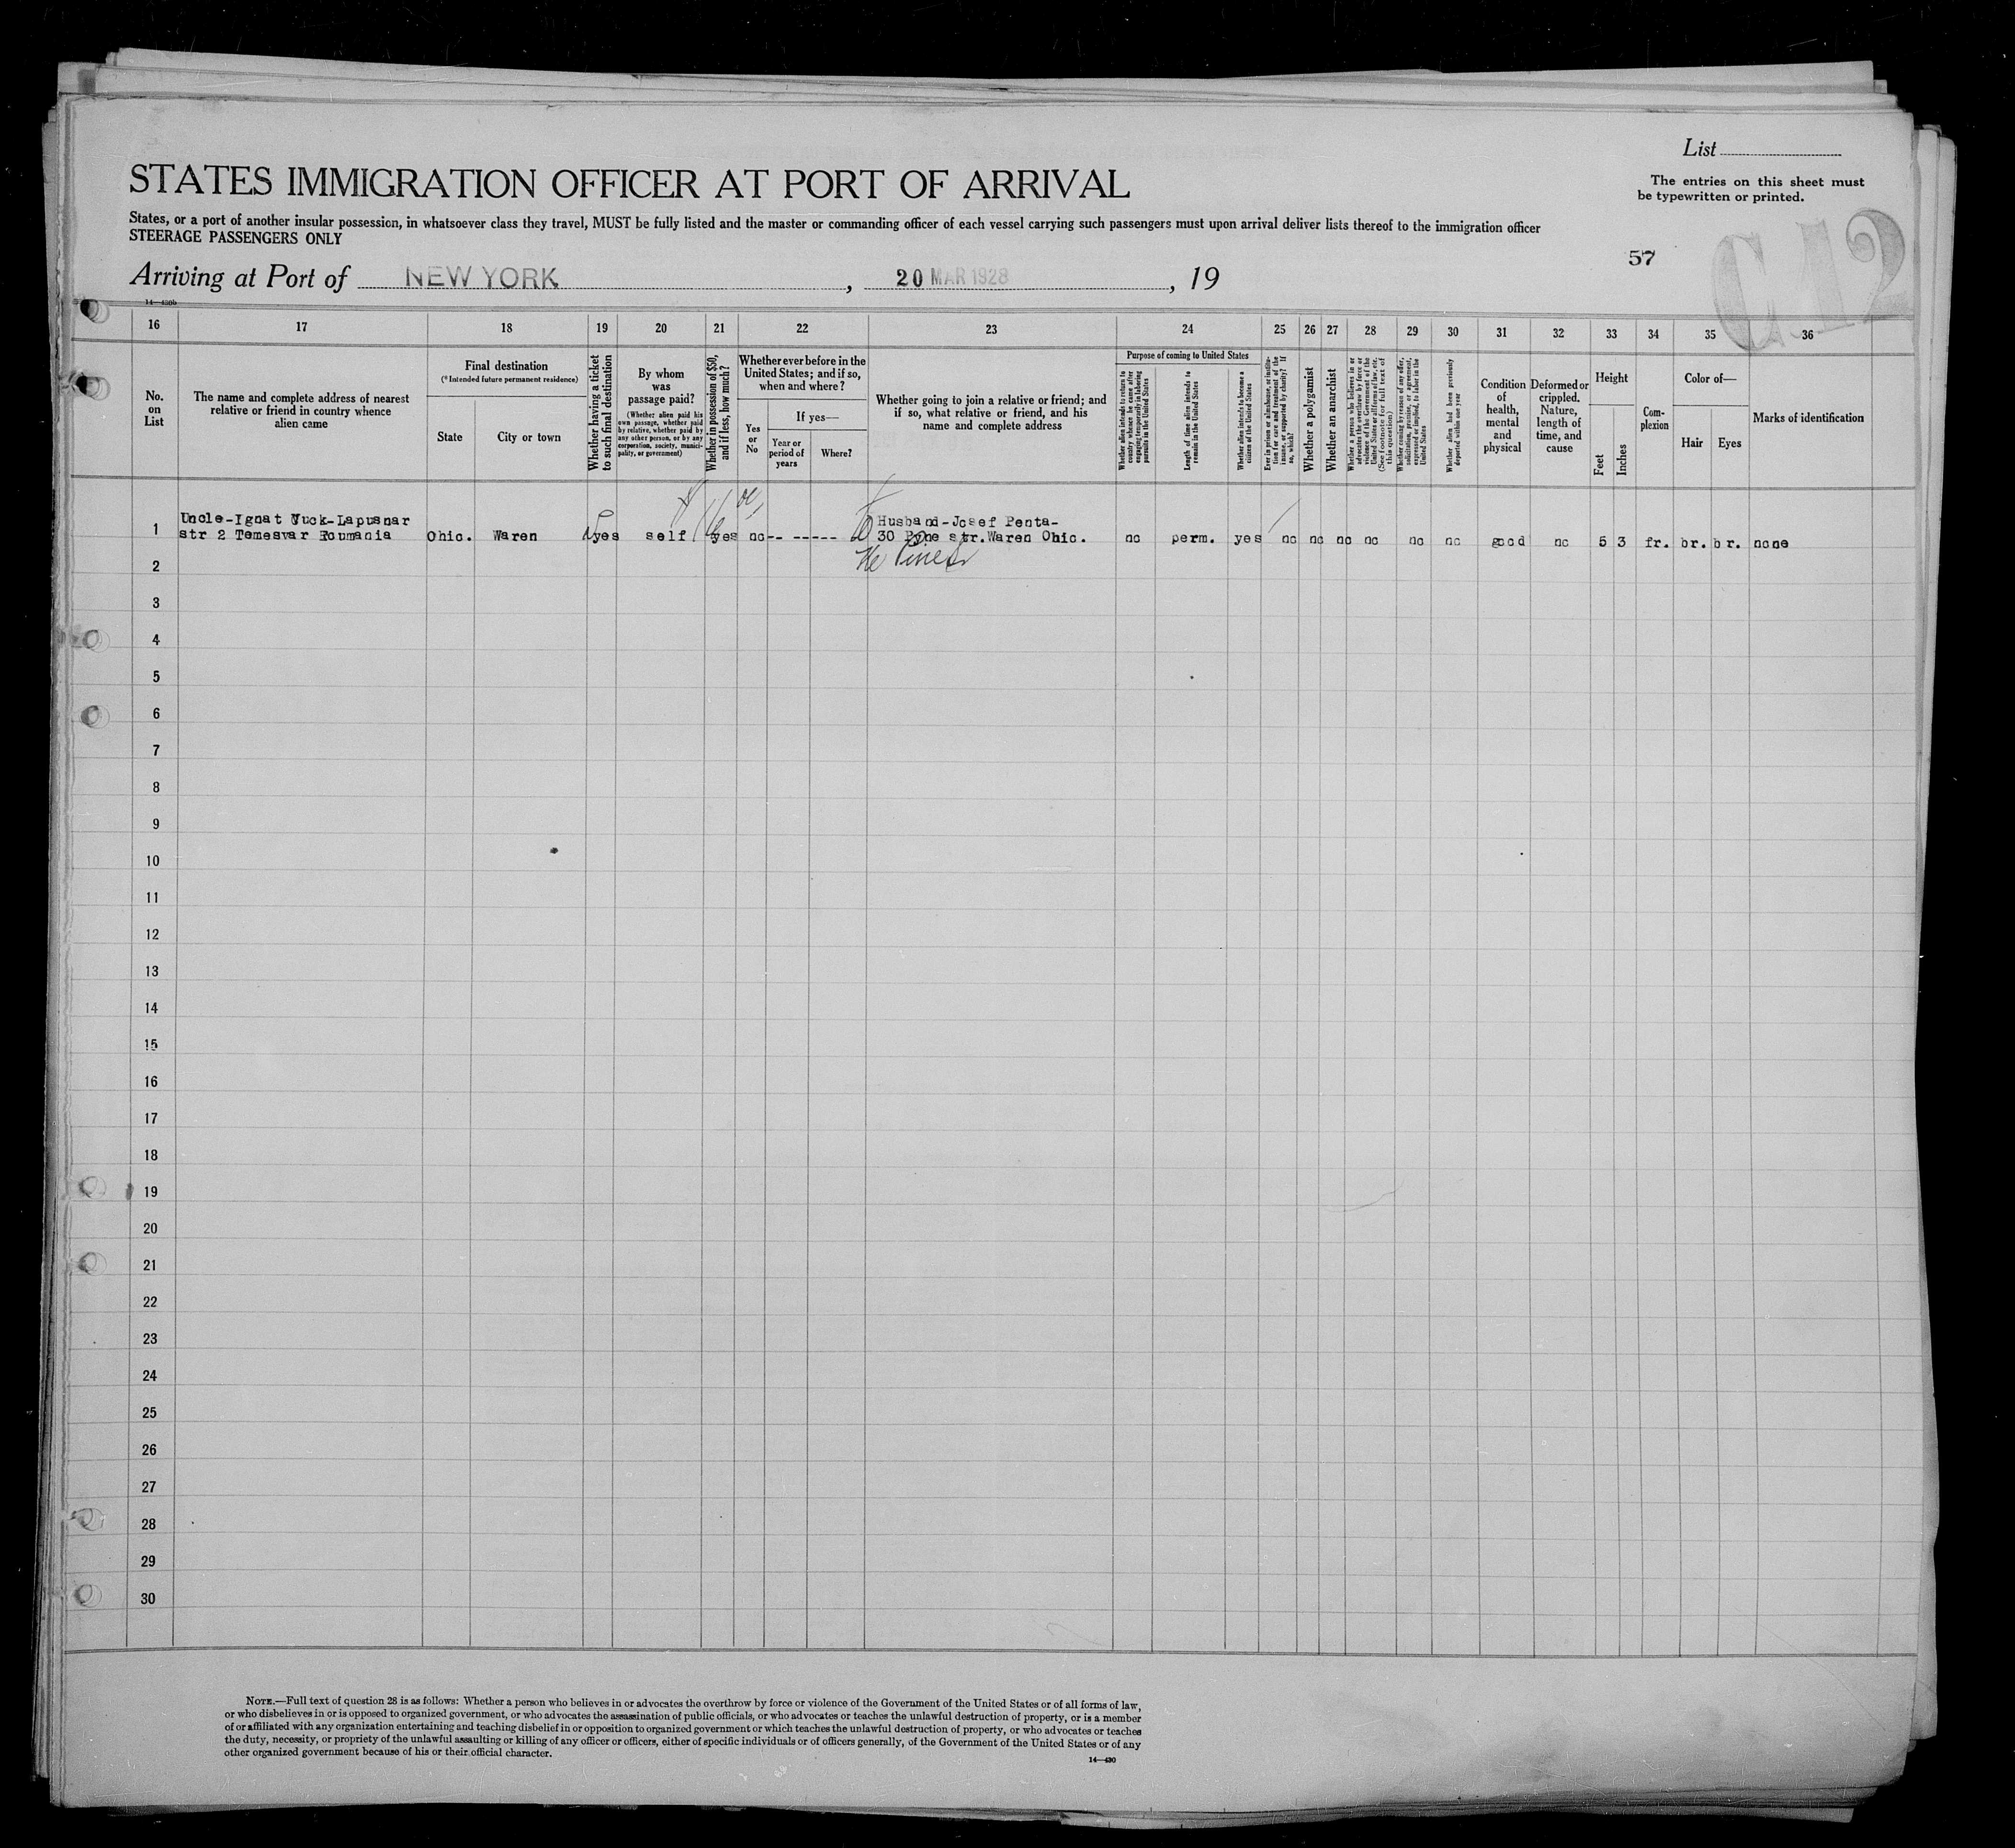 List
STATES IMMIGRATION OFFICER AT PORT OF ARRIVAL
The entries on this sheet must
be typewritten or printed.
States, or a port of another insular possession, in whatsoever class they travel, MUST be fully listed and the master or commanding officer of each vessel carrying such passengers must upon arrival deliver lists thereof to the immigration officer
STEERAGE PASSENGERS ONLY
57
Arriving at Port of NEW YORK, 20 MAR 1928, 19
14—430b
16 17 18 19 20 21 22 23 24 25 26 27 28 29 30 31 32 33 34 35 36
No.
on
List
The name and complete address of nearest
relative or friend in country whence
alien came
Final destination
(*Intended future permanent residence)
State
City or town
Whether having a ticket
to such final destination
By whom
was
passage paid?
(Whether alien paid his
own passage, whether paid
by relative, whether paid by
any other person, or by any
corporation, society, munici-
pality, or government)
Whether in possession of $50,
and if less, how much?
Whether ever before in the
United States; and if so,
when and where?
Yes
or
No
If yes—
Year or
period of
years
Where?
Whether going to join a relative or friend; and
if so, what relative or friend, and his
name and complete address
Purpose of coming to United States
Whether alien intends to return to
country whence he came after
engaging temporarily in laboring
pursuits in the United States
Length of time alien intends to
remain in the United States
Whether alien intends to become a
citizen of the United States
Ever in prison or almshouse, or institu-
tion for care and treatment of the
insane, or supported by charity? If
so, which?
Whether a polygamist
Whether an anarchist
Whether a person who believes in or
advocates the overthrow by force or
violence of the Government of the
United States or all forms of law, etc.
(See footnote for full text of
this question)
Whether coming by reason of any offer,
solicitation, promise, or agreement,
expressed or implied, to labor in the
United States
Whether alien had been previously
deported within one year
Condition
of
health,
mental
and
physical
Deformed or
crippled.
Nature,
length of
time, and
cause
Height
Feet
Inches
Com-
plexion
Color of—
Hair
Eyes
Marks of identification
1 Uncle-Ignat Vuck-Lapusnar
str 2 Temesvar Roumania
Ohio. Waren yes self yes no-- -----
Husband-Josef Penta-
30 Pine str.Waren Ohio.
no perm. yes no no no no no no good no 5 3 fr. br. br. none
Pine
2
3
4
5
6
7
8
9
10
11
12
13
14
15
16
17
18
19
20
21
22
23
24
25
26
27
28
29
30
NOTE.—Full text of question 28 is as follows: Whether a person who believes in or advocates the overthrow by force or violence of the Government of the United States or of all forms of law,
or who disbelieves in or is opposed to organized government, or who advocates the assassination of public officials, or who advocates or teaches the unlawful destruction of property, or is a member
of or affiliated with any organization entertaining and teaching disbelief in or opposition to organized government or which teaches the unlawful destruction of property, or who advocates or teaches
the duty, necessity, or propriety of the unlawful assaulting or killing of any officer or officers, either of specific individuals or of officers generally, of the Government of the United States or of any
other organized government because of his or their official character.
14—430